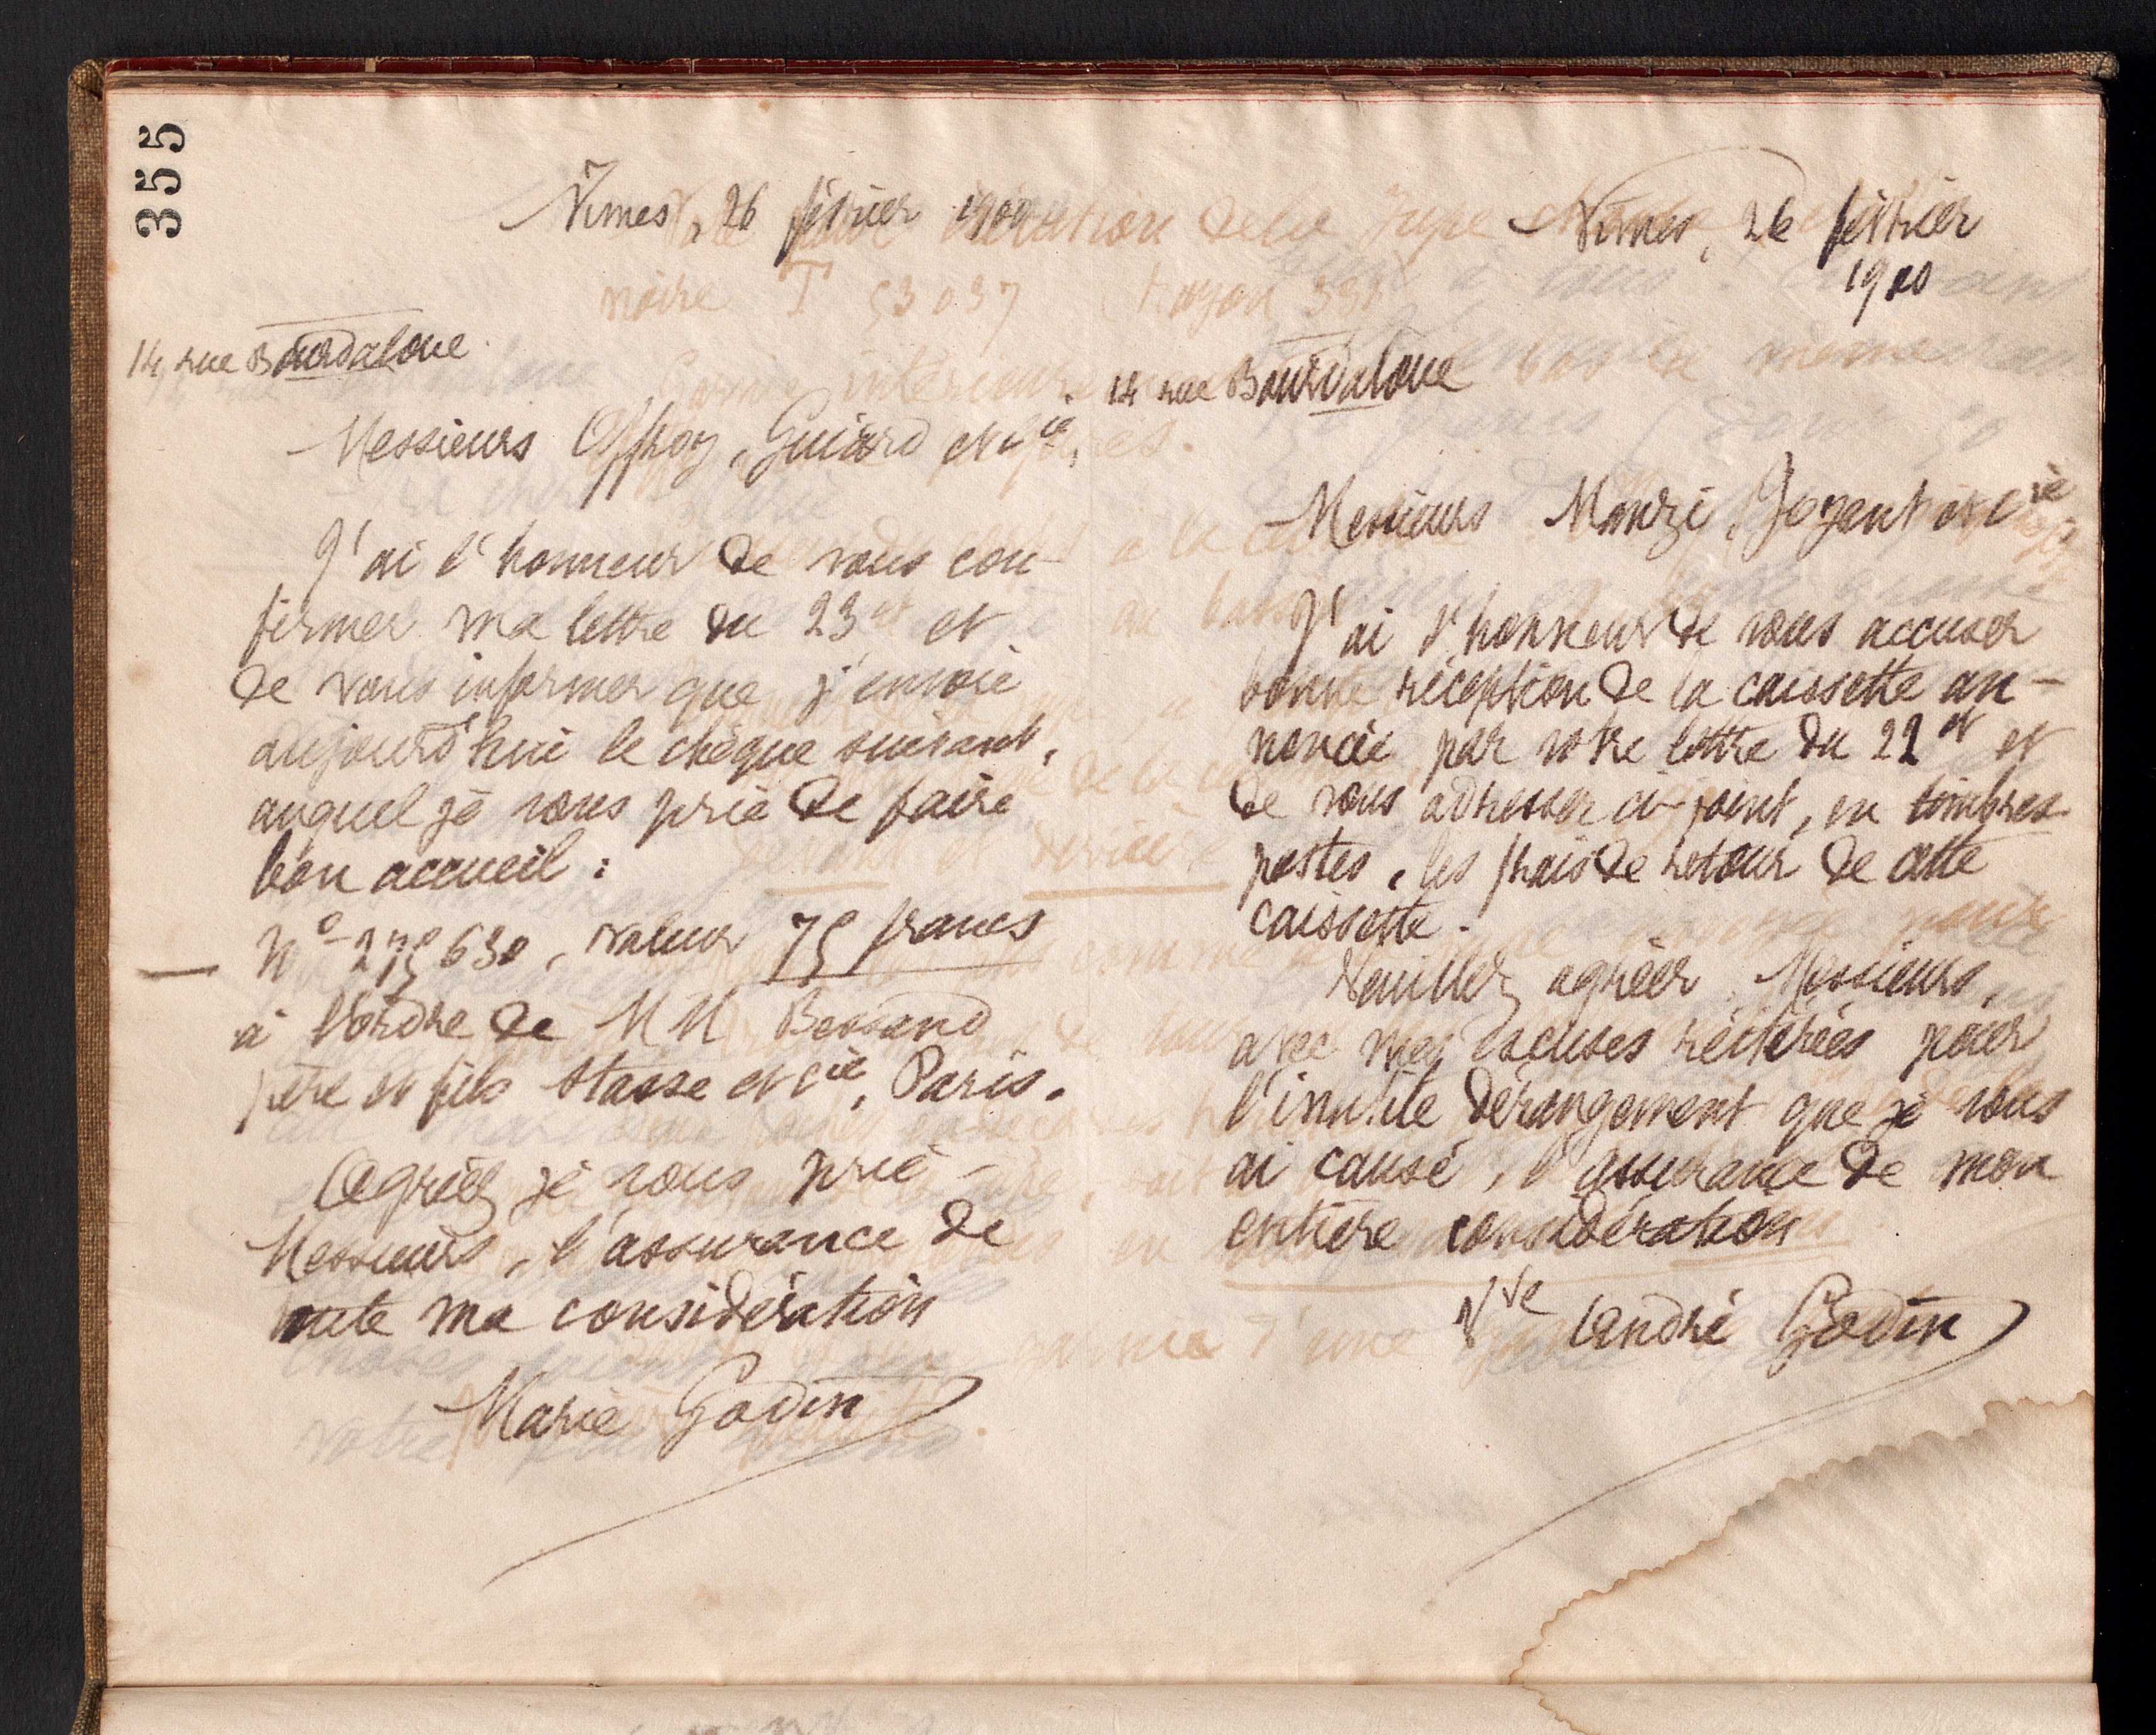 355
Nîmes, 26 février 1900
14 rue Bourdaloue
Messieurs Offroy, Guiard et Cie,
J'ai l'honneur de vous con-
firmer ma lettre du 23 et et
de vous informer que j'envoie
aujourd'hui le chèque suivant,
auquel je vous prie de faire
bon accueil :
No 275630, valeur 75 francs
à l'ordre de MM Bessand
père et fils Stasse et Cie, Paris.
Agréez je vous prie
Messieurs, l'assurance de
toute ma considération
Marie Godin
Nîmes, 26 février
1900
14 rue Bourdaloue
Messieurs Manzi, Joyant et Cie
J'ai l'honneur de vous accuser
bonne réception de la caissette an-
noncée par votre lettre du 22 et et
de vous adresser ci-joint, en timbres
postes, les frais de retour de cette
caissette.
Veuillez agréer Messieurs,
avec mes excuses réitérées pour
l'inutile dérangement que je vous
ai causé, l'assurance de mon
entière considération
Vve André Godin